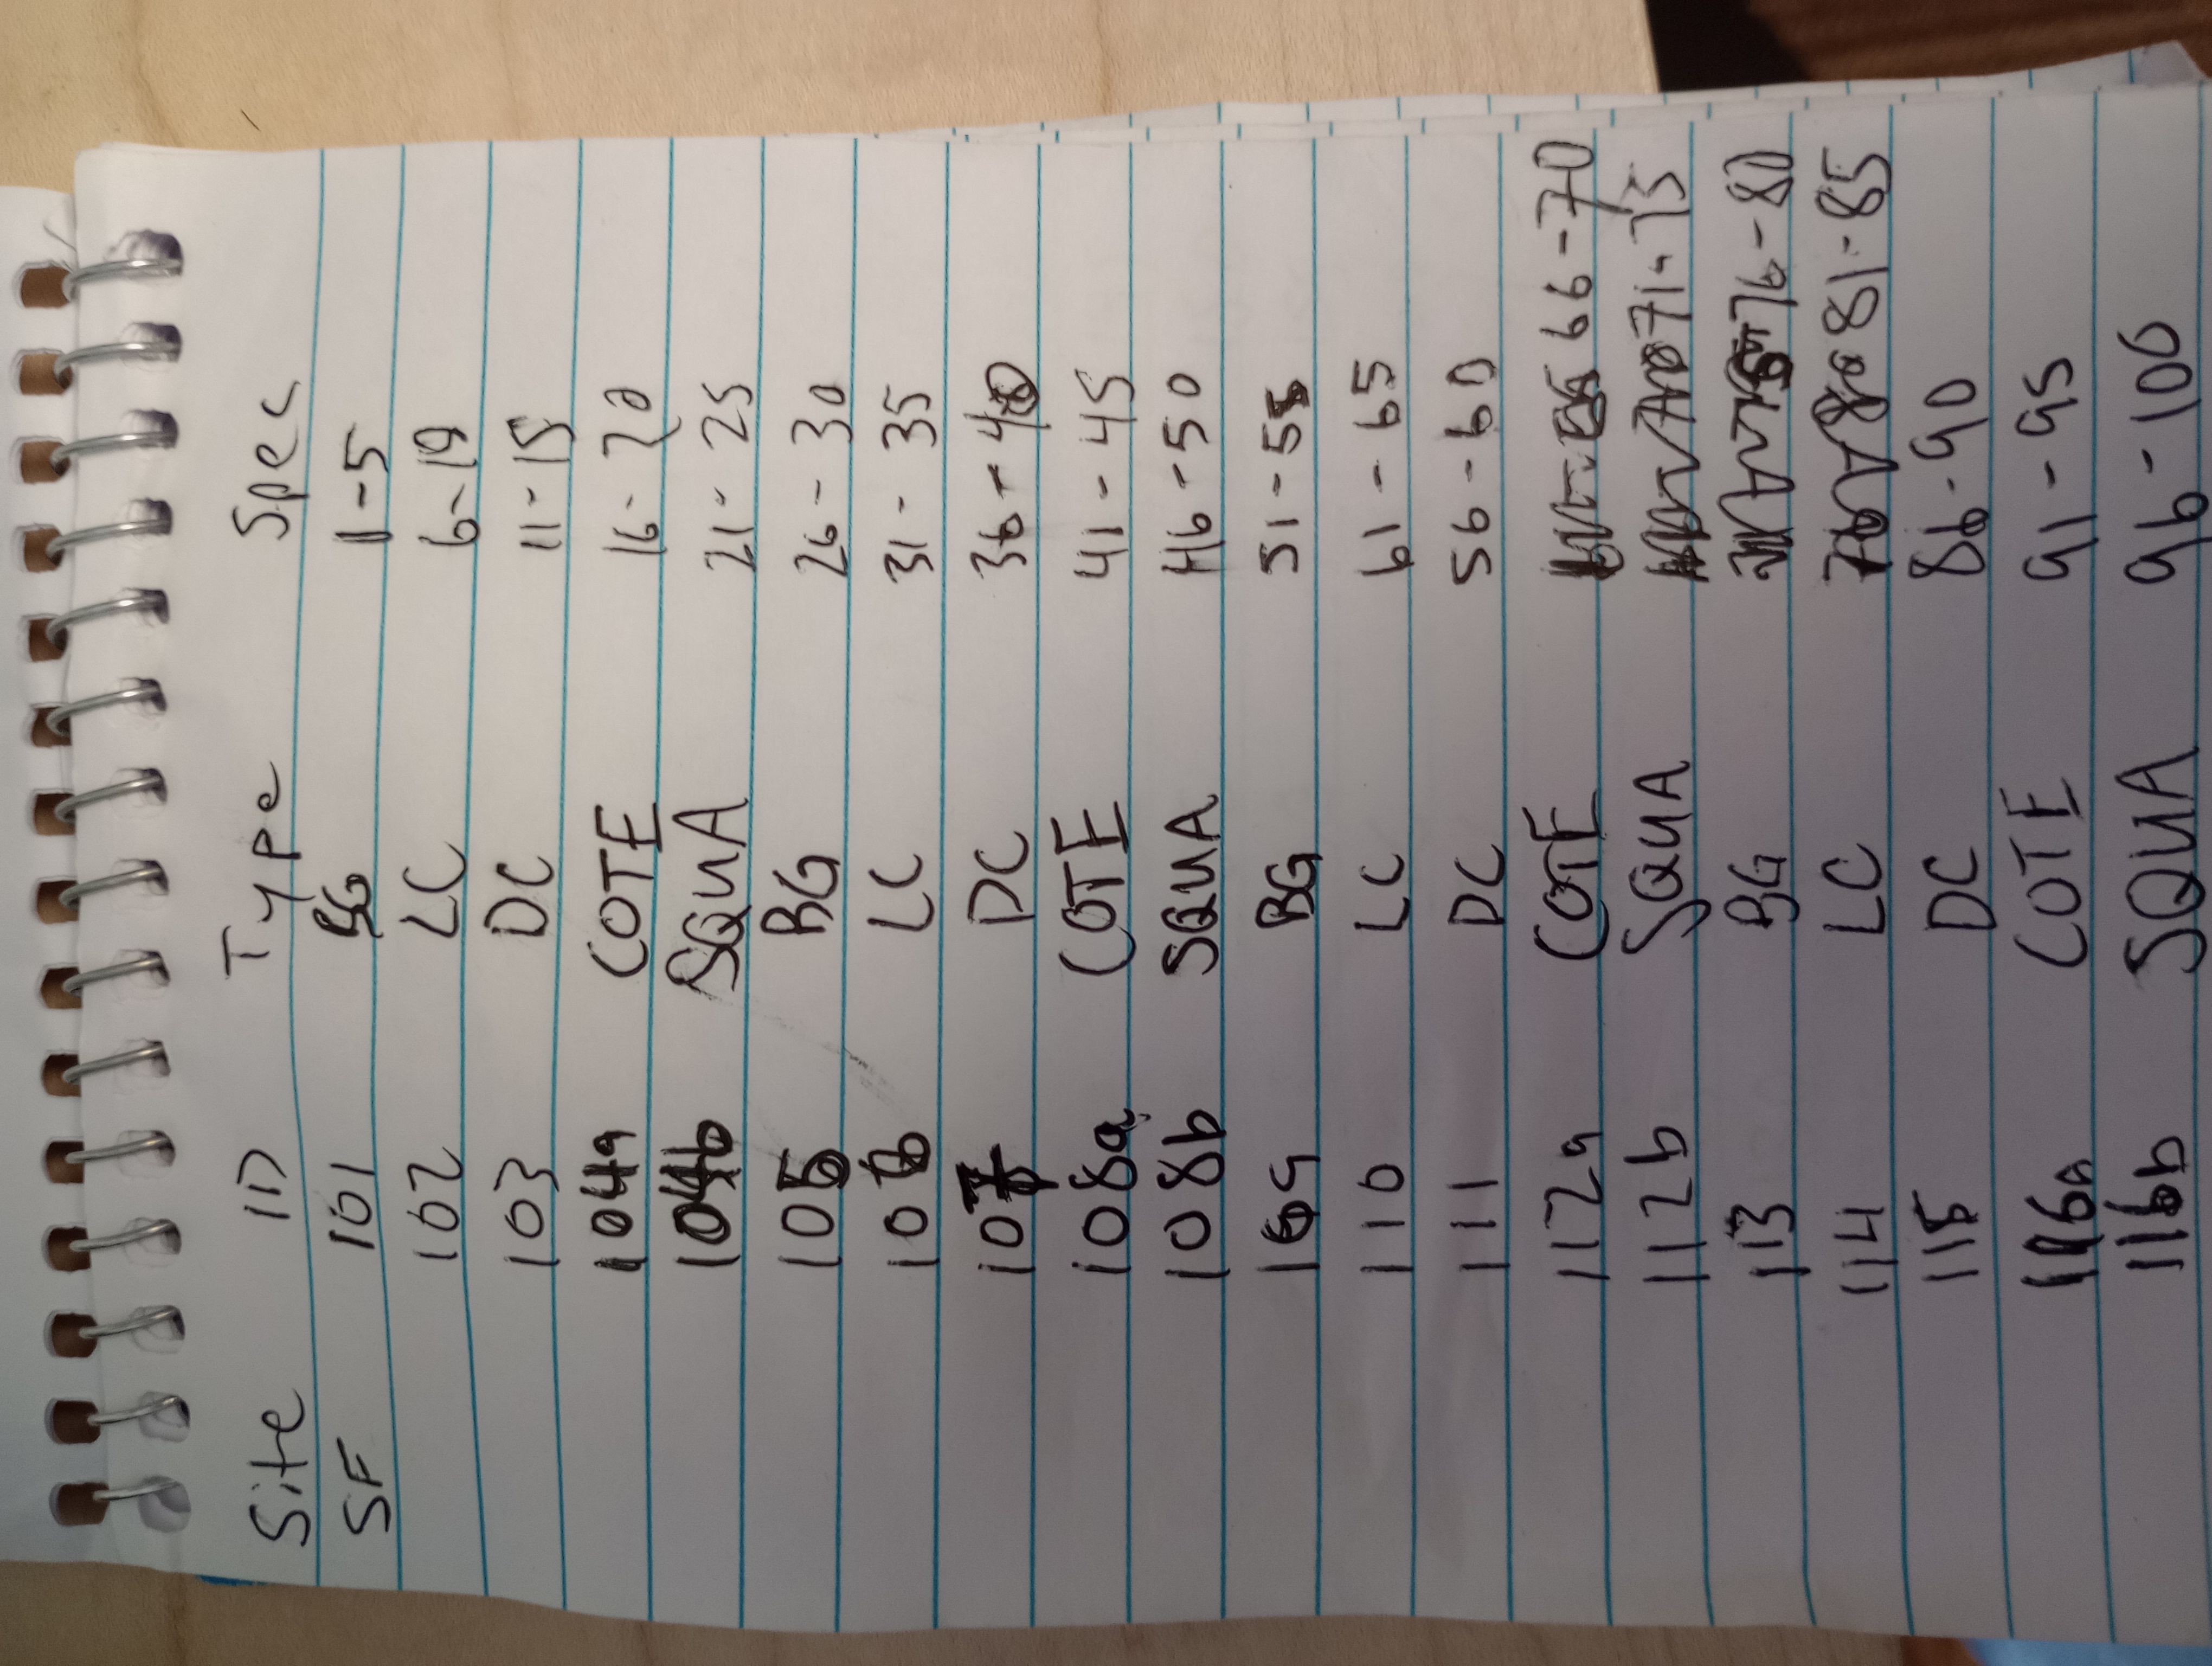 Site ID Type Spec
SF 101 BG 1-5
102 LC 6-10
103 DC 11-15
104a COTE 16-20
104b SQUA 21-25
105 BG 26-30
106 LC 31-35
107 DC 36-40
108a COTE 41-45
108b SQUA 46-50
109 BG 51-55
110 LC 61-65
111 DC 56-60
112a COTE 66-70
112b SQUA 71-75
113 BG 76-80
114 LC 81-85
115 DC 86-90
116a COTE 91-95
116b SQUA 96-100